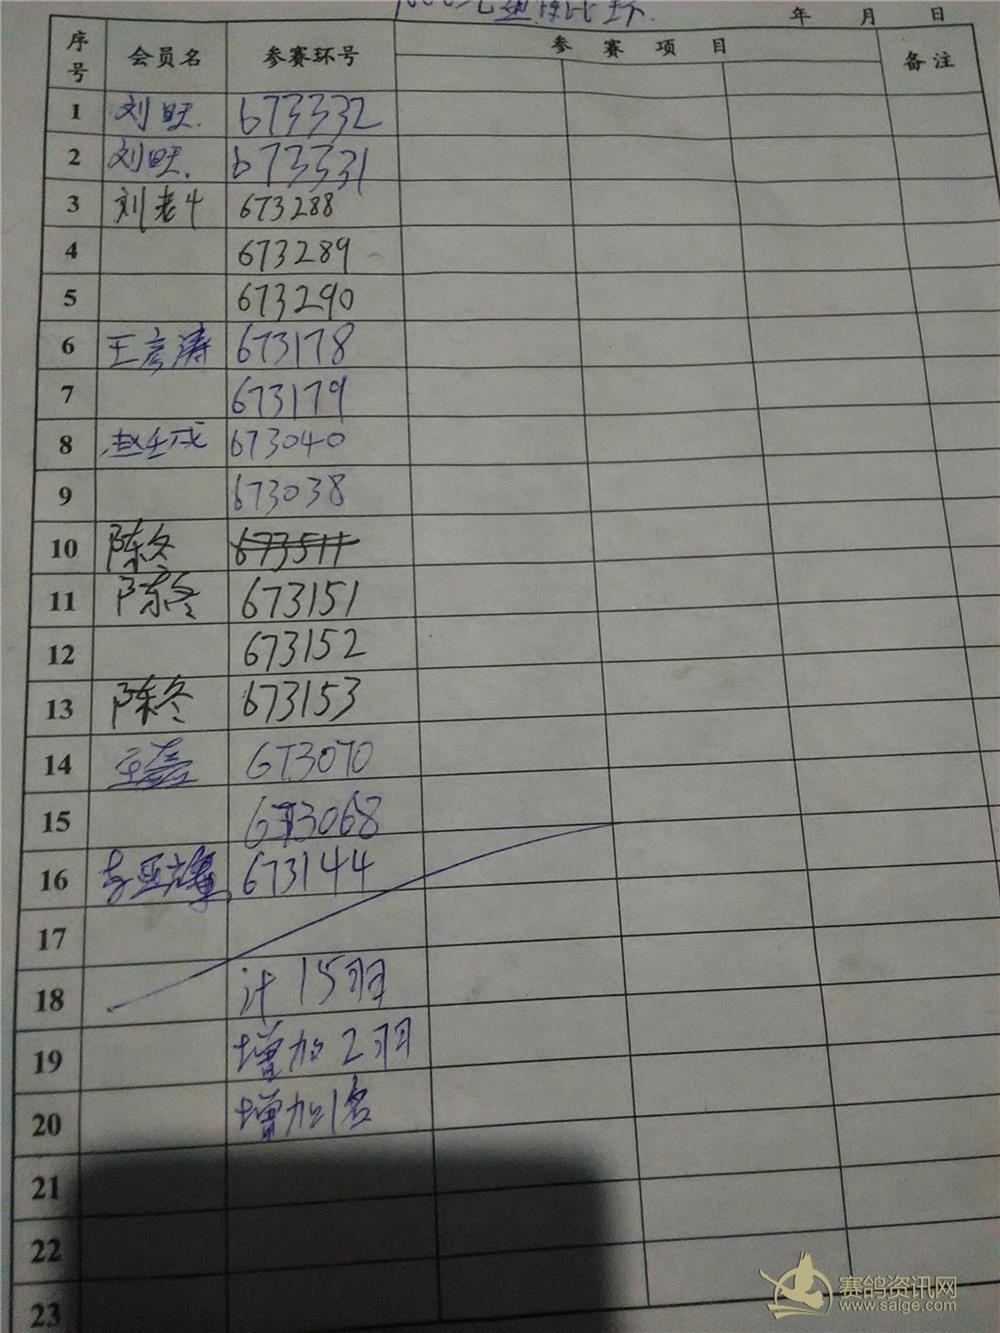 年 月 日
序号 会员名 参赛环号 参赛项目 备注
1 刘旺. 673332
2 刘旺. 673331
3 刘老牛 673288
4 673289
5 673290
6 王彦涛 673178
7 673179
8 673040
9 673038
10 陈冬 673511
11 陈冬 673151
12 673152
13 陈冬 673153
14 673070
15 673068
16 673144
17
18 计15羽
19 增加2羽
20 增加1名
21
22
23
赛鸽资讯网
www.saige.com